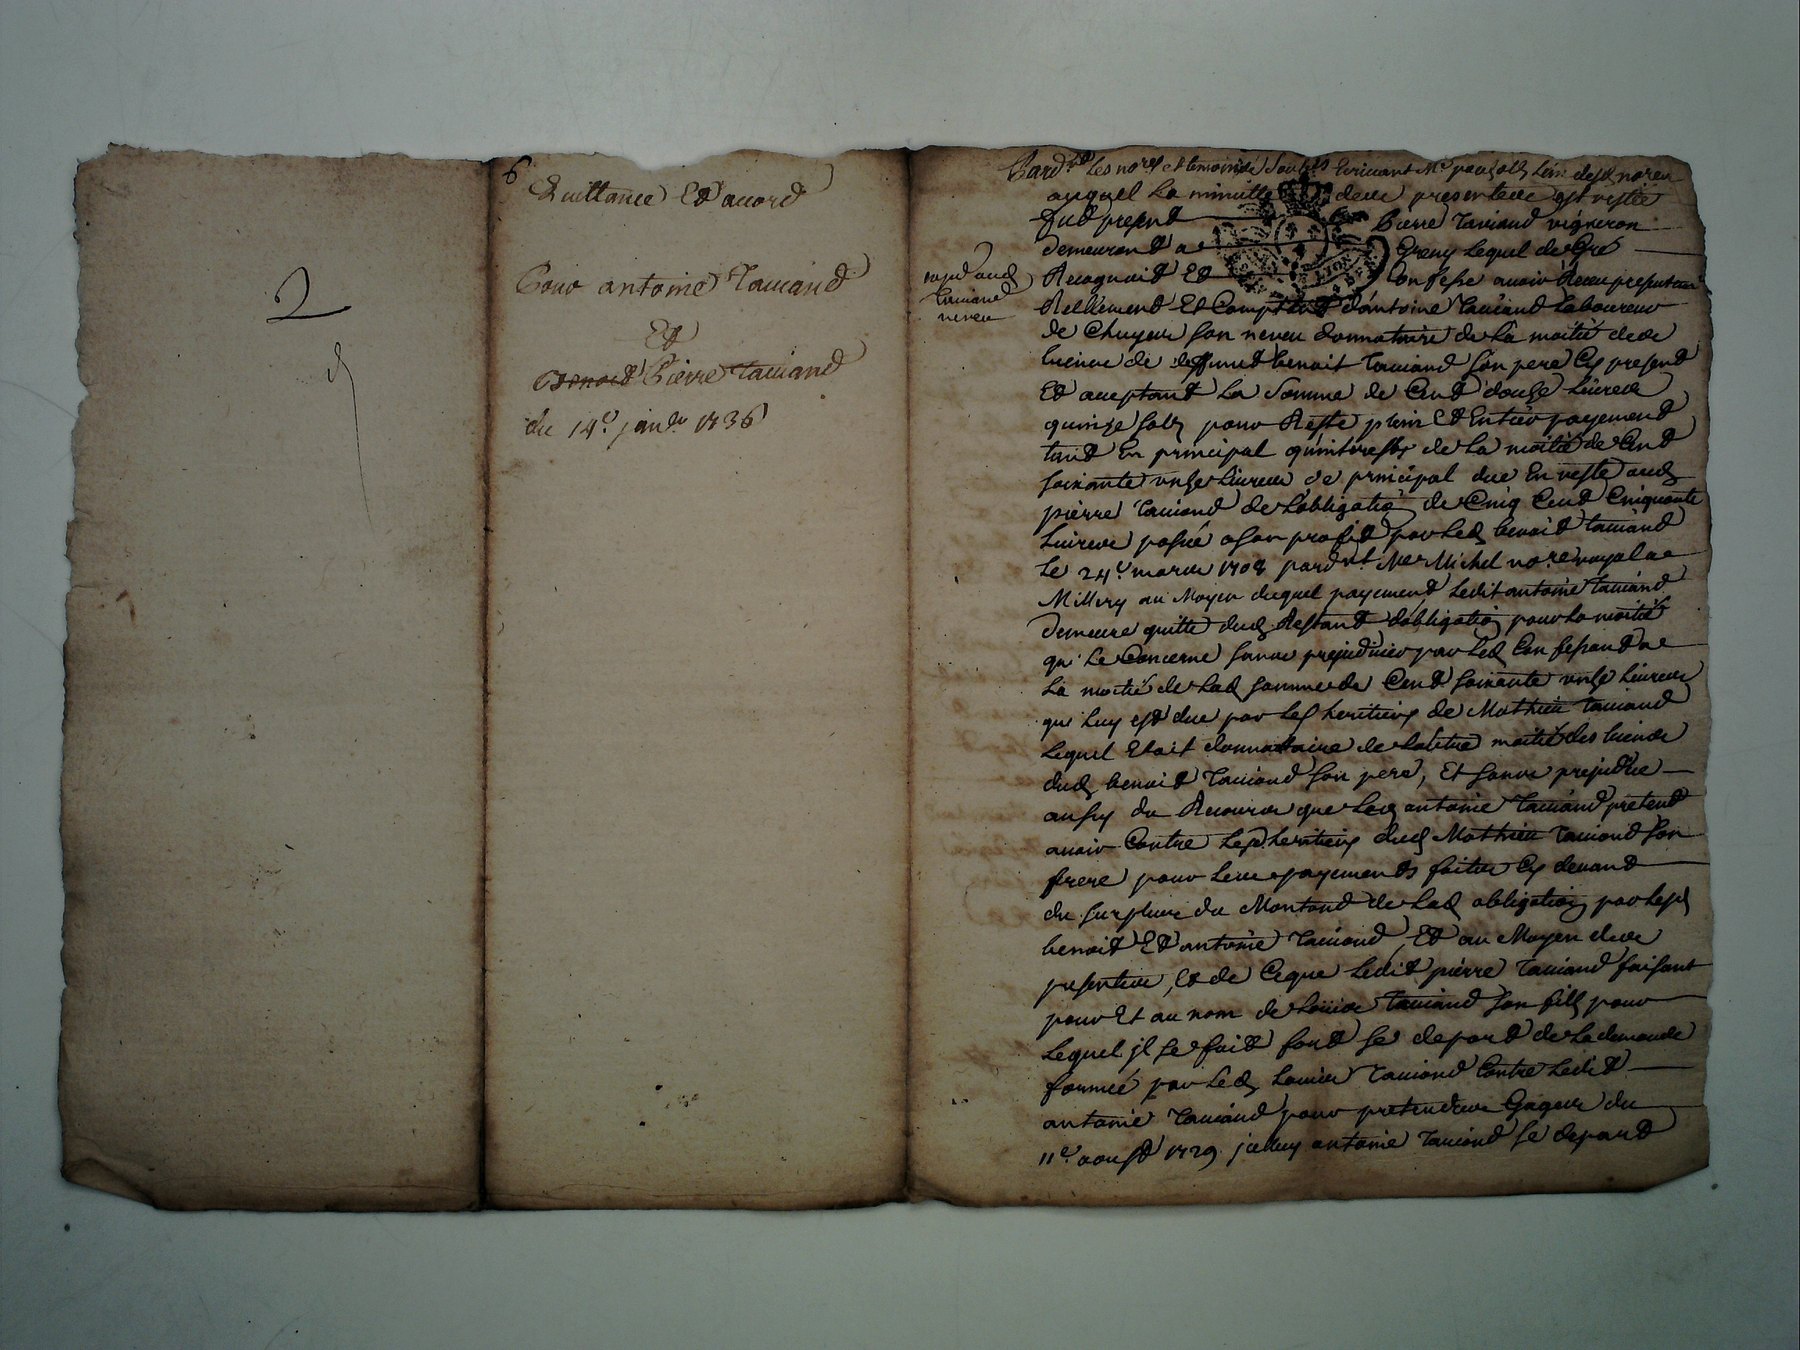 2
6
Quittance Et accord
Pour antoine Tauiand
Et
Benoit Pierre Tauiand
du 14e. janr. 1736
expd aud
Tauiand
neveu
Pard. vt Les nores et temoins Sousnes Ecrivant Me
auquel La minutte dece presentece est restée
fut present Pierre Tauiand vigneron
demeurant a Greny Lequel de Gré
Recognoit Et Confesse avoir Receu presentem
Rellement Et Comptant d'antoine Tauiand Laboureur
de Chuyer son neveu donnataire de La moitié dece
bience de deffunct benoit Tauiand son pere Cy present
Et acceptant La Somme de Cent douse Livrece
quinse solz pour Reste plein Et Entier payement
tant En principal qu'intrestz de La moitié de Cent
soixante unse Livrece de principal due En reste aud
pierre Tauiand de L'obligation de Cinq Cent Cinquante
Livrece passée a son profit par Led benoit Tauiand
Le 24e. marce 1708 pard. vt Me Michel nore royal a
Millery au Moyen duquel payement Ledit antoine Tauiand
demeure quitte dud Restant d'obligation pour La moitié
qui Le Concerne sance prejudicier par Led Confessant a
La moitié de Lad somme de Cent soixante unse Livrece
qui Luy est due par Les heritiers de Mathieu Tauiand
Lequel Etoit donnataire de L'autre moitié des bience
dud benoit Tauiand son pere, Et sance prejudice
aussy du Recource que Led antoine Tauiand pretend
avoir Contre Lesd heritiers dud Mathieu Tauiand son
frere pour Lece payements faitce Cy devant
du surpluce du Montant de Lad obligation par Lesd
benoit Et antoine Tauiand, Et au Moyen dece
presentece, Et de Ceque Ledit pierre Tauiand faisant
pour Et au nom de Louice Tauiand son fils pour
Lequel jl se fait fort se depart de La demande
formée par Led Louice Tauiand Contre Ledit
antoine Tauiand pour pretenduce Gagece du
11e. aoust 1729 jcelluy antoine Tauiand se depart